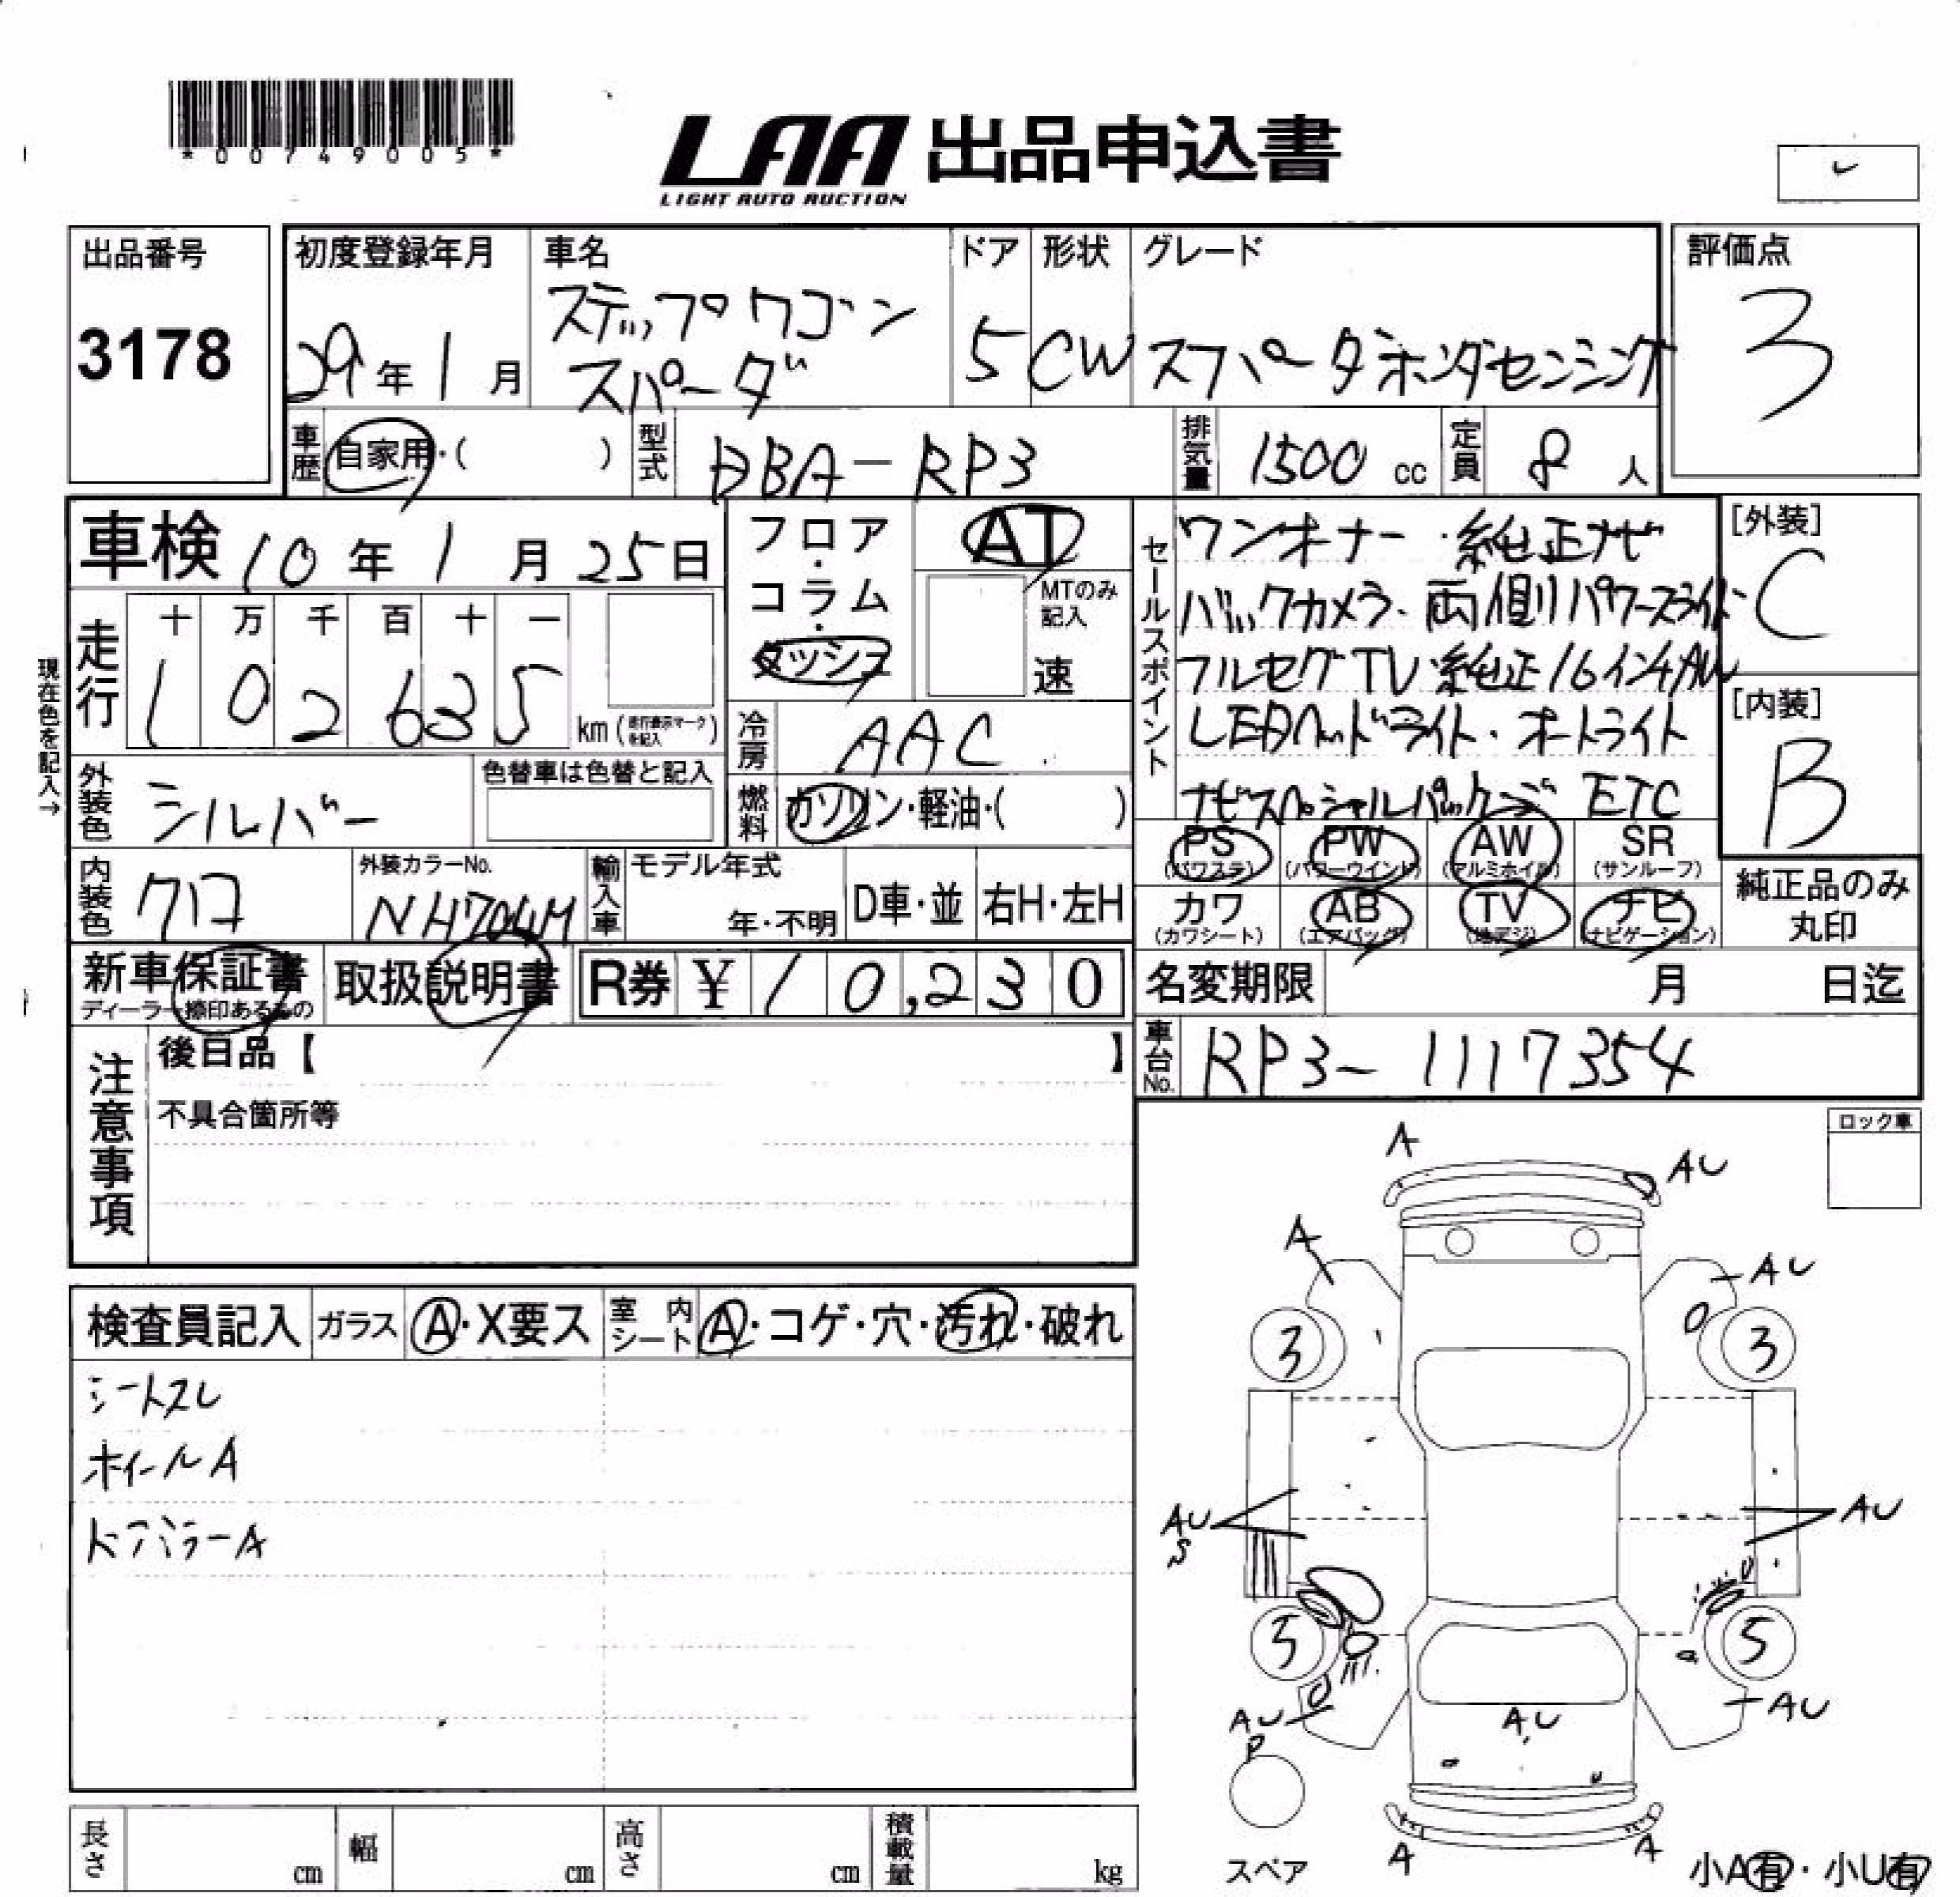 *00749005*
LAA 出品申込書
LIGHT AUTO AUCTION
出品番号
3178
初度登録年月
29年1月
車名
ステップワゴン
スパーダ
ドア
5
形状
CW
グレード
スパーダホンダセンシング
評価点
3
車歴 自家用・( )
型式 DBA-RP3
排気量 1500 cc
定員 8 人
車検 10年1月25日
フロア・コラム・ダッシュ
AT
MTのみ記入
速
セールスポイント
ワンオーナー・純正ナビ
バックカメラ・両側パワースライド
フルセグTV・純正16インチAW
LEDヘッドライト・オートライト
ナビスペシャルパッケージ ETC
[外装]
C
[内装]
B
現在色を記入→
走行
十 万 千 百 十 一
1 0 2 6 3 5
km(走行表示マークを記入)
冷房 AAC
外装色 シルバー
色替車は色替と記入
燃料 ガソリン・軽油・( )
PS (パワステ)
PW (パワーウインド)
AW (アルミホイル)
SR (サンルーフ)
カワ (カワシート)
AB (エアバッグ)
TV (地デジ)
ナビ (ナビゲーション)
純正品のみ
丸印
内装色 クロ
外装カラーNo.
NH704M
輸入車
モデル年式
年・不明
D車・並
右H・左H
新車保証書
ディーラー捺印あるもの
取扱説明書
R券 ¥10,230
名変期限 月 日迄
車台No. RP3-1117354
注意事項
後日品【 】
不具合箇所等
ロック車
検査員記入
ガラス A・X要ス
室内シート A・コゲ・穴・汚れ・破れ
シートスレ
ホイールA
ドアバラーA
A
AU
A
AU
3
3
AU
S
AU
5
AU
P
AU
AU
A
A
スペア
小A有・小U有
長さ cm
幅 cm
高さ cm
積載量 kg